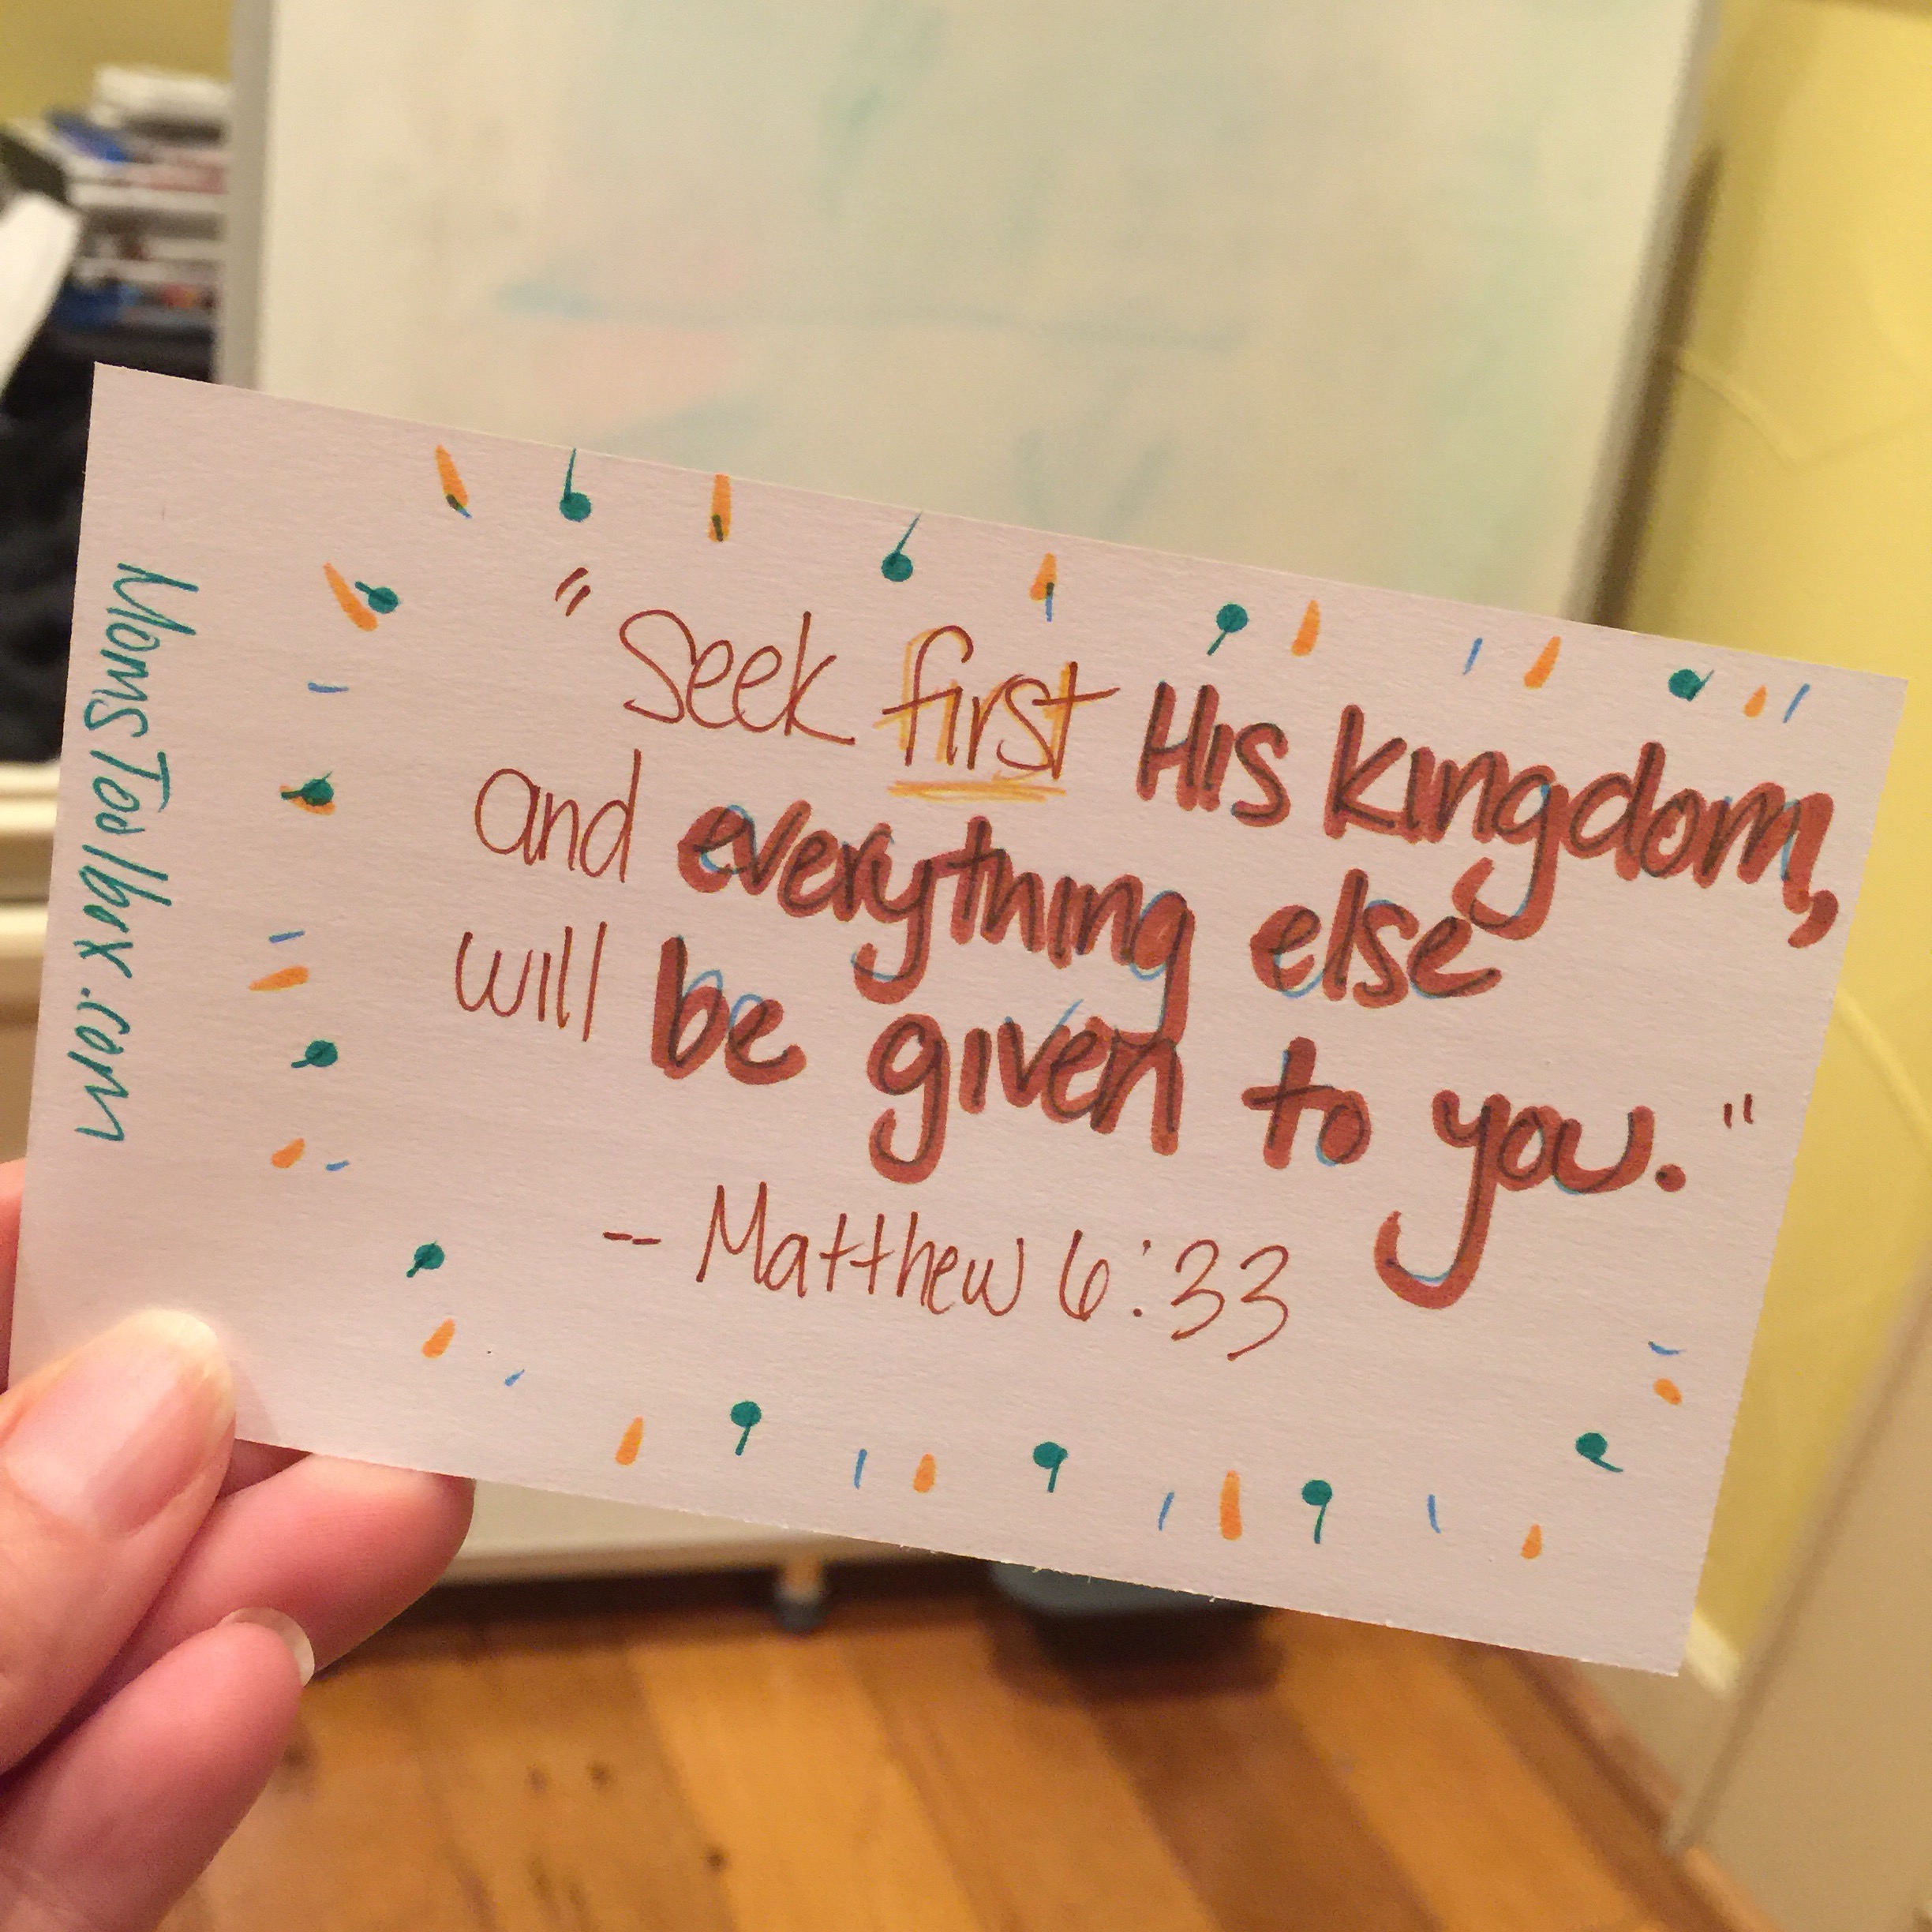 "Seek first His kingdom,
and everything else
will be given to you."
-- Matthew 6:33
MomsToolbox.com